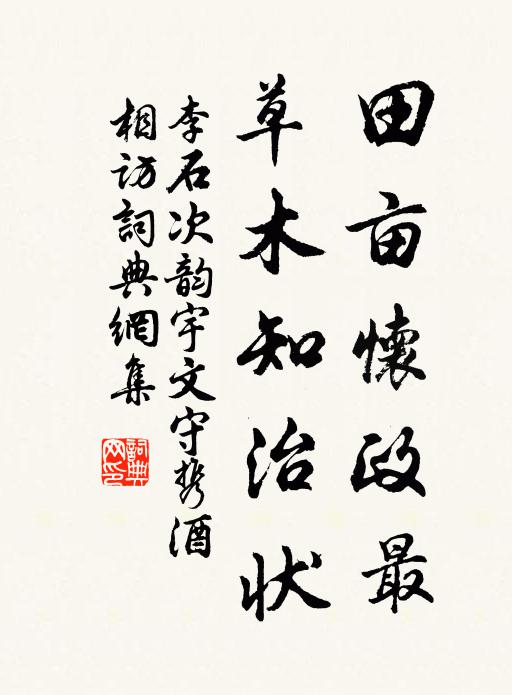 田亩懷政最
草木知治状
李石次韵宇文守携酒
相访詞典網集
詞典网印